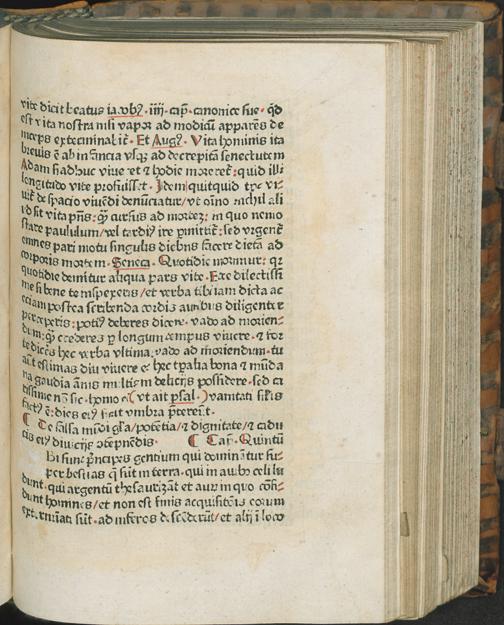 vite dicit beatus iacobꝰ · iiij · cap̄ · canonice sue · q̄d
est vita nostra nisi vapor ad modicū apparēs de
inceps exterminabit̄ · Et Augꝰ · Vita hominis ita
breuis ē ab infancia vsq̨ ad decrepitā senectutem
Adam si adhuc viue et et hodie moreret̄ : quid illi
longitudo vite profuisset · Item quitquid tꝑe vi
uit̄ de spacio viuēdi denūciatur / vt oīno nichil ali
id sit vita pn̄s : q̄ȝ cursus ad mortez : in quo nemo
stare paululum / vel tardiꝰ ire ꝑmittit̄ : sed vrgent̄
omnes pari motu singulis diebus facere dietā ad
corporis mortem · Seneca · Quotidie morimur : qr
quotidie demitur aliqua pars vite · Ecce dilectissi
me si bene te inspexeris / et verba tibi iam dicta ac
eciam postea scribenda cordis auribus diligenter
perceperis : potiꝰ deberes dicere · vado ad morien⸗
dum : q̄ȝ crederes ꝑ longum tempus viuere · et for
te dicēs hec verba vltima · vado ad moriendum · tu
aūt estimas diu viuere et hec tꝑalia bona et mūda
na gaudia ānis multis in delicijs possidere · sed ca
rissime nō sic · homo ei ( vt ait psal · ) vanitati silis
factꝰ ē : dies eiꝰ sicut vmbra p̄tereūt ·
¶ De falsa mūdi gl̄a / potētia / et dignitate / et cadu
cis eiꝰ diuicijs ꝯtēpnēdis · ¶ Cap̄ · Quintū
Bi sunt p̄ncipes gentium qui dominātur su⸗
per bestias q̄ sūt in terra · qui in auibꝰ celi lu
dunt · qui argentū thesaurizāt et aurū in quo cōfi⸗
dunt homines / et non est finis acquisitōis eorum
exterminati sūt · ad inferos descenderūt / et alij ī loco